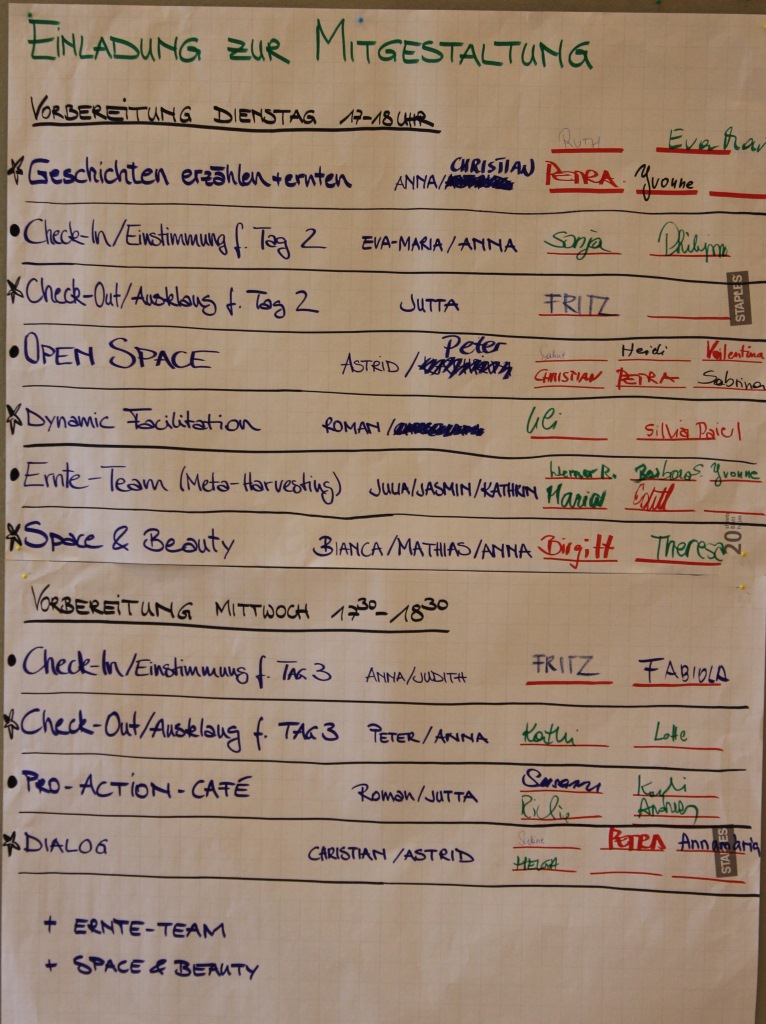 EINLADUNG ZUR MITGESTALTUNG
VORBEREITUNG DIENSTAG 17-18 UHR
RUTH
Geschichten erzählen + ernten ANNA/ CHRISTIAN PETRA Yvonne
• Check-In/Einstimmung f. Tag 2 EVA-MARIA/ANNA Sonja
Check-Out/Ausklang f. Tag 2 JUTTA FRITZ
STAPLES
• OPEN SPACE ASTRID / Peter Heidi Valentina
CHRISTIAN PETRA Sabrina
Dynamic Facilitation ROMAN / Uli Silvia
• Ernte-Team (Meta-Harvesting) JULIA/JASMIN/KATHRIN Werner R. Barbara S Yvonne
Maria Edith
Space & Beauty BIANCA/MATHIAS/ANNA Birgitt Theresa
20
VORBEREITUNG MITTWOCH 17³⁰-18³⁰
• Check-In/Einstimmung f. TAG 3 ANNA/JUDITH FRITZ FABIOLA
Check-Out/Ausklang f. TAG 3 PETER/ANNA Kathi Lotte
• PRO-ACTION-CAFÉ Roman/JUTTA
DIALOG CHRISTIAN/ASTRID PETRA Annamaria
HELGA
STAPLES
+ ERNTE-TEAM
+ SPACE & BEAUTY